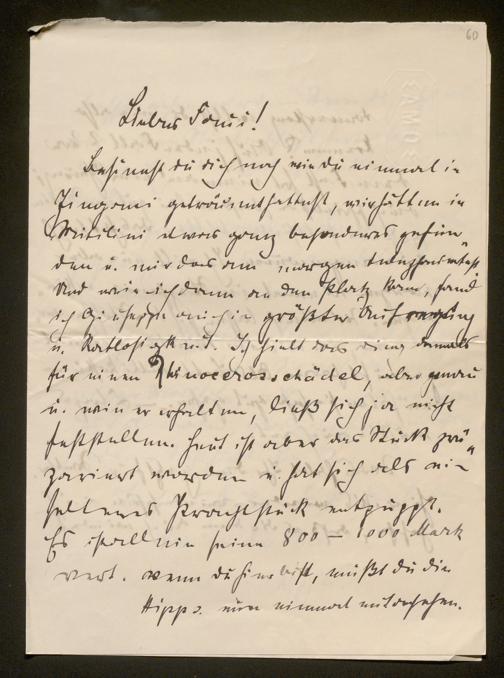 60
Lieber Toni!
Besinnst du dich noch wie du einmal in
geträumt hattest, wir hätten in
Mitilini etwas ganz besonderes gefun
den u. mir das am morgen
Und wie ich dann an den Platz kam, fand
ich in größter Aufregung
u. Ratlosigkeit. Ich hielt das Ding damals
für einen Rhinocerosschädel, aber genau
u. wie er erhalten, ließ sich ja nicht
feststellen. Heut ist aber das Stück prä
pariert worden u. hat sich als ein
seltenes Prachtstück entpuppt.
Es soll seine 800 – 1000 Mark
wert. wenn du hier bist, mußt du die
Hipps. einmal ansehen.
KAMOS